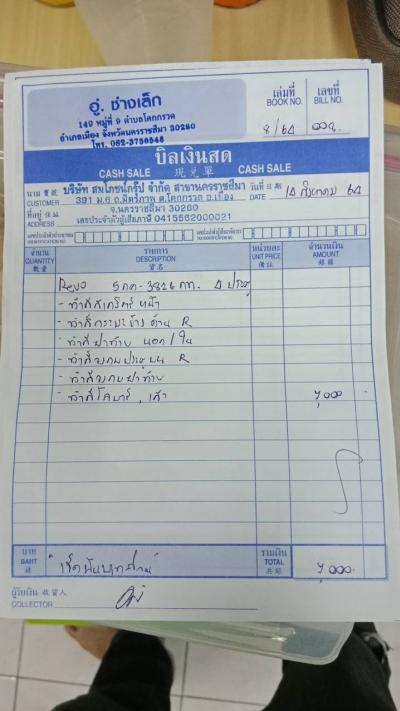 อู่. ช่างเล็ก
149 หมู่ที่ 9 ตำบลโคกกรวด
อำเภอเมือง จังหวัดนครราชสีมา 30280
โทร. 082-3756548
เล่มที่ เลขที่
BOOK NO. BILL NO.
8/64
บิลเงินสด
CASH SALE 現兑單 CASH SALE
นาม 寶號 บริษัท สมโภชน์กรุ๊ป จำกัด สาขานครราชสีมา วันที่ 日期 14 64
CUSTOMER 391 ม.6 ถ.มิตรภาพ ต.โคกกรวด อ.เมือง DATE
ที่อยู่ 住址 จ.นครราชสีมา 30280
ADDRESS เลขประจำตัวผู้เสียภาษี 0415562000021
จำนวน รายการ หน่วยละ จำนวนเงิน
QUANTITY DESCRIPTION UNIT PRICE AMOUNT
數量 貨名 備註 錢額
Revo 5กถ-3326 กท. 4 ประตู
- ทำสี หน้า
- ทำสีกระบะข้างด้าน R
- ทำสีฝาท้าย นอก/ใน
- ทำสี R
- ฝาท้าย
- ทำสีโรลบาร์, เสา 7,000
บาท รวมเงิน
BAHT "เจ็ดพันบาทถ้วน" TOTAL 7,000-
錢 共銀
ผู้รับเงิน 收貨人
COLLECTOR